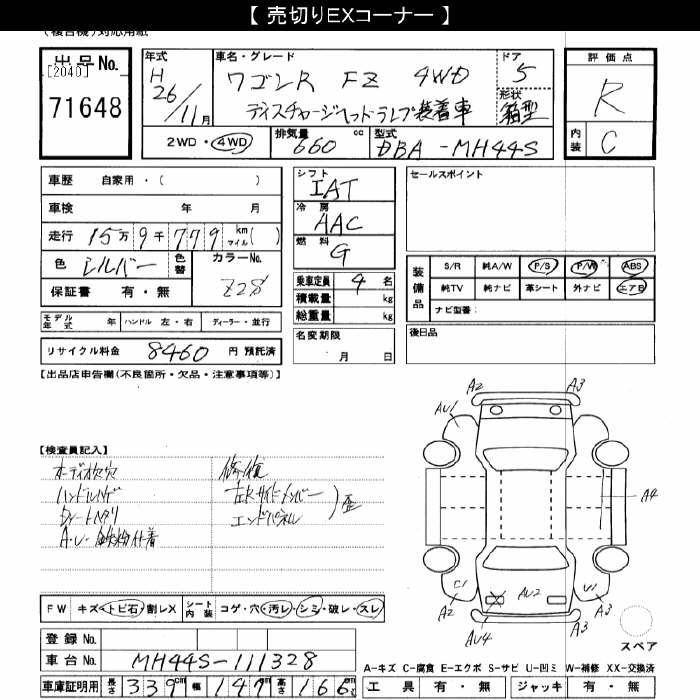 【 売切りEXコーナー 】
(複合機)対応用紙
出品No.
[2040]
71648
年式
H
26/11月
車名・グレード
ワゴンR FZ 4WD
ディスチャージヘッドランプ装着車
ドア
5
形状
箱型
2WD・4WD
排気量
660 cc
型式
DBA-MH44S
評価点
R
内装
C
車歴 自家用・( )
車検 年 月
走行 15万9千779 km マイル( )
色 シルバー 色替
カラーNo.
Z2S
保証書 有・無
モデル年式 年 ハンドル 左・右 ディーラー・並行
リサイクル料金 8460 円 預託済
シフト
IAT
冷房
AAC
燃料
G
乗車定員 4 名
積載量 kg
総重量 kg
名変期限
月 日
セールスポイント
装備品
S/R 純A/W P/S P/W ABS
純TV 純ナビ 革シート 外ナビ エアB
ナビ型番:
後日品
【出品店申告欄(不良箇所・欠品・注意事項等)】
【検査員記入】
オーディオ欠穴
ハンドルハゲ
A・U・鉄粉付着
修復
左Rサイドメンバー
エンドパネル
歪
FW キズ・トビ石・割レX
シート内装 コゲ・穴・汚レ・シミ・破レ・スレ
登録No.
車台No. MH44S-111328
車庫証明用 長さ 339cm 幅 147cm 高さ 166cm
A2
A3
AU1
A4
C1
A2
AU2
W1
A3
AU4
A3
スペア
A-キズ C-腐食 E-エクボ S-サビ U-凹ミ W-補修 XX-交換済
工具 有・無 ジャッキ 有・無